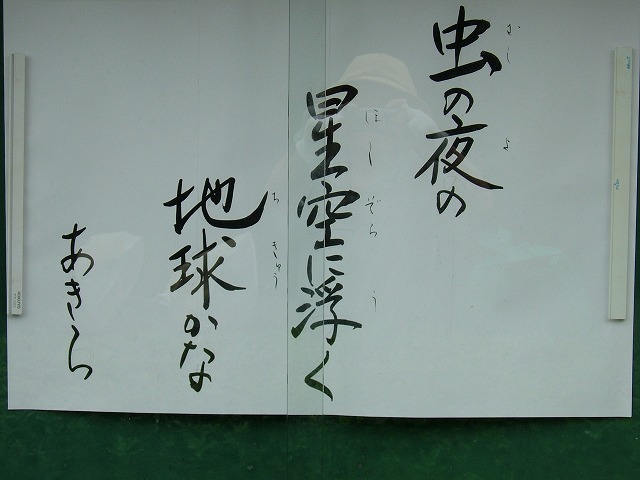 虫の夜の
むし よ
星空に浮く
ほしぞら う
地球かな
ちきゅう
あきら